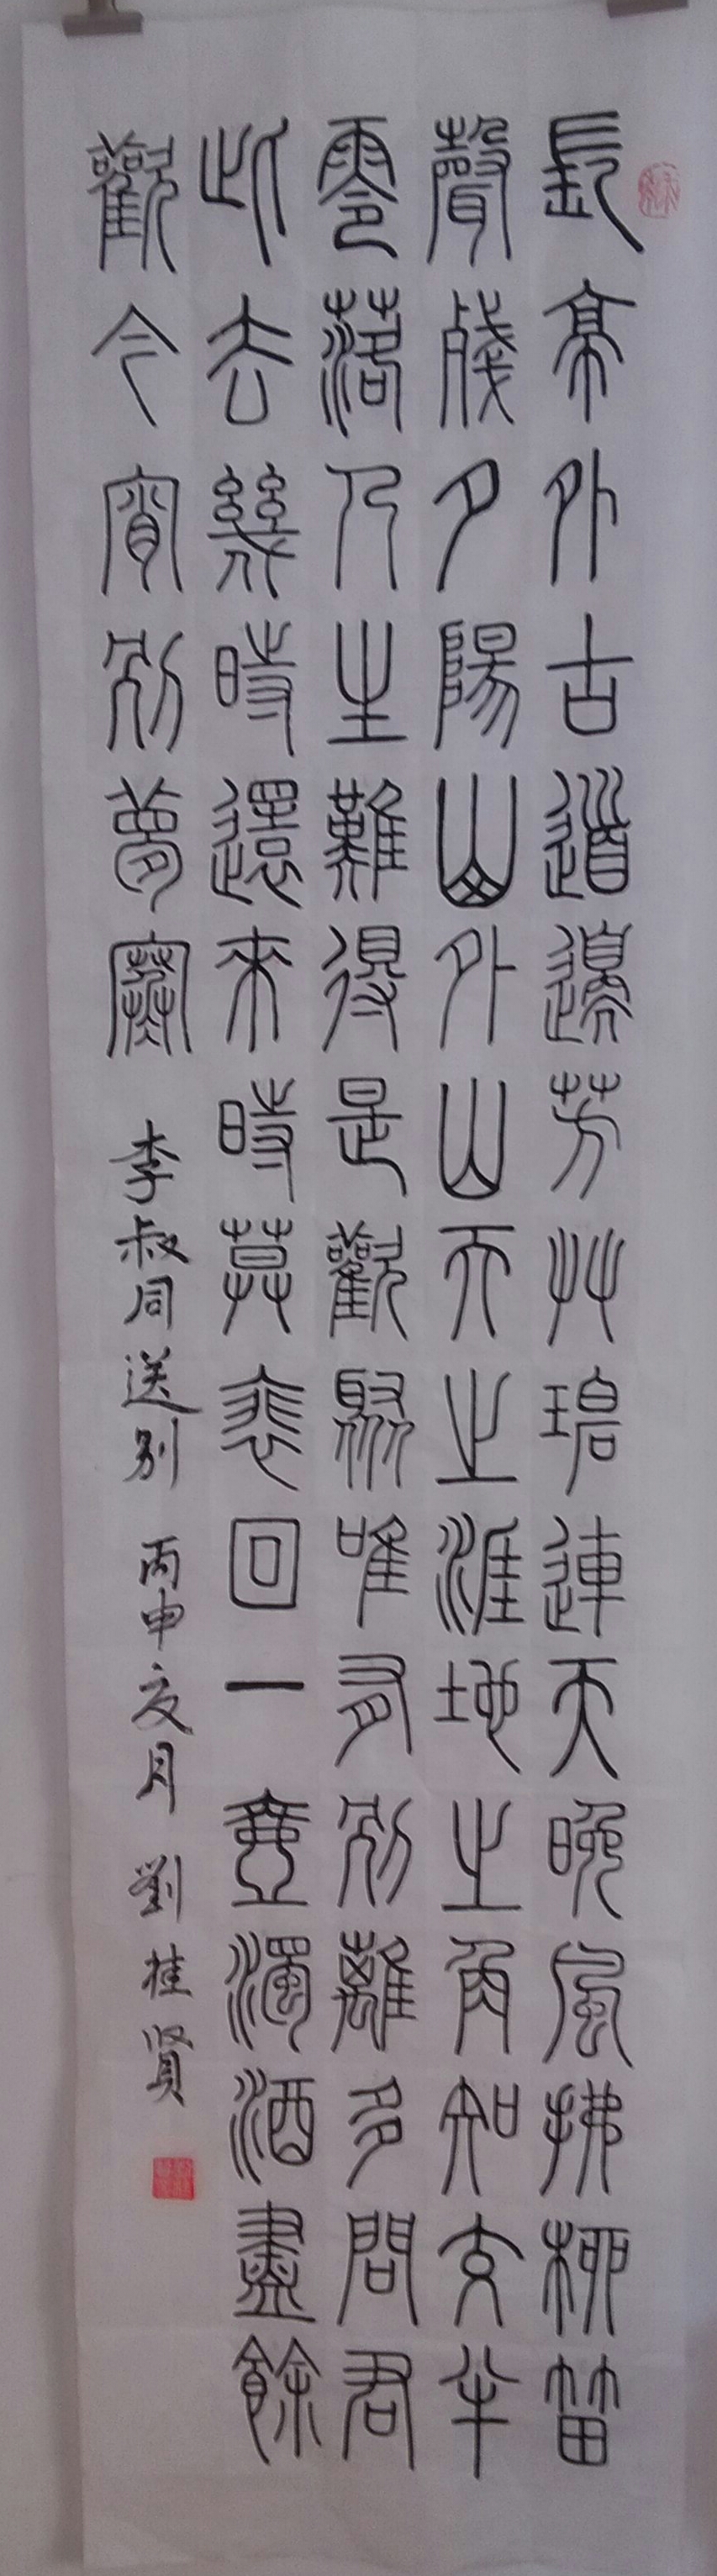 長亭外古道邊芳艸碧連天晚風拂柳笛
聲殘夕陽山外山天之涯地之角知交半
零落人生難得是歡聚唯有別離多問君
此去幾時還來時莫裴回一壺濁酒盡餘
歡今宵別夢寒 李叔同送別 丙申夏月 劉桂賢